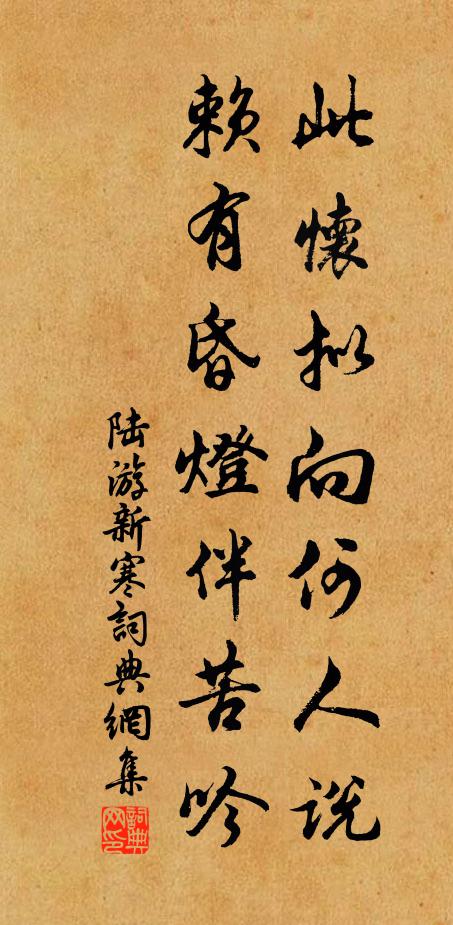 此懷擬向何人說
賴有昏燈伴苦吟
陸游新寒詞典網集
詞典網印